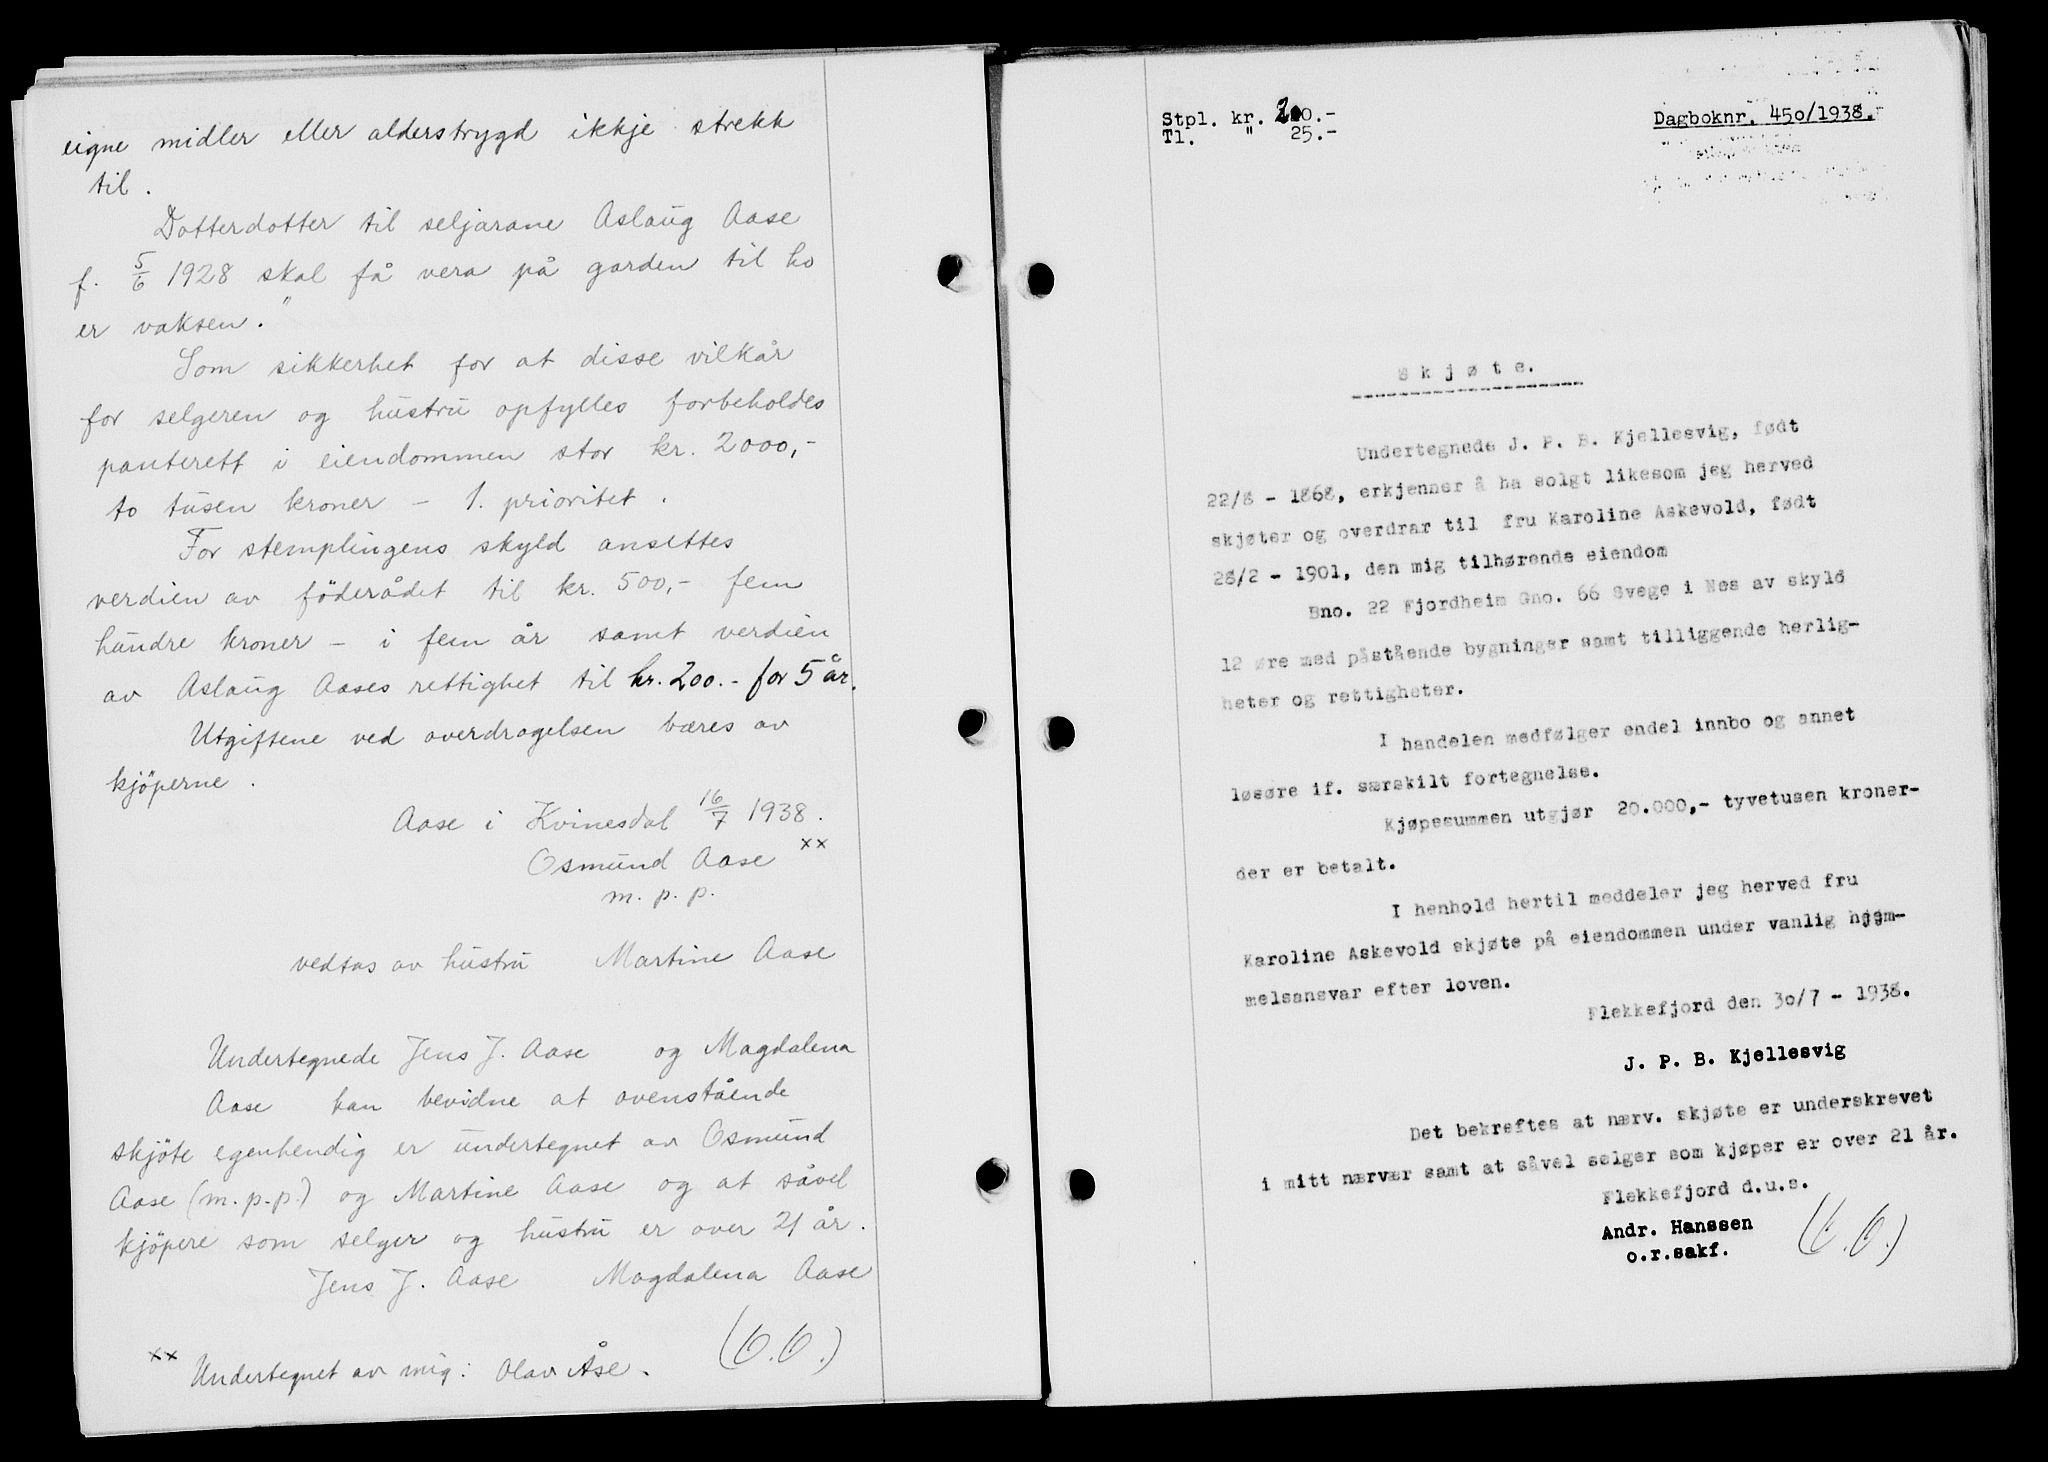 eigne midler eller alderstrygd ikkje strekk
til.
Dotterdotter til seljarane Aslaug Aase
f. 5/6 1928 skal få vera på garden til ho
er vaksen."
Som sikkerhet for at disse vilkår
for selgeren og hustru opfylles forbeholdes
panterett i eiendommen stor kr. 2000,-
to tusen kroner - 1. prioritet.
For stemplingens skyld ansettes
verdien av föderådet til kr. 500,- fem
hundre kroner - i fem år samt verdien
av Aslaug Aases rettighet til kr. 200.- for 5 år.
Utgiftene ved overdragelsen bæres av
kjöperne.
Aase i Kvinesdal 16/7 1938.
Osmund Aase xx
m. p. p.
vedtas av hustru Martine Aase
Undertegnede Jens J. Aase og Magdalena
Aase kan bevidne at ovenstående
skjöte egenhendig er undertegnet av Osmund
Aase (m.p.p.) og Martine Aase og at såvel
kjöpere som selger og hustru er over 21 år.
Jens J. Aase Magdalena Aase
(O.O.)
xx Undertegnet av mig: Olav Åse.
Stpl. kr. 200.-
Tl. " 25.-
Dagboknr. 450/1938.
Skjøte.
Undertegnede J. P. B. Kjellesvig, født
22/8 - 1868, erkjenner å ha solgt likesom jeg herved
skjøter og overdrar til fru Karoline Askevold, født
28/2 - 1901, den mig tilhørende eiendom
Bno. 22 Fjordheim Gno. 66 Svege i Nes av skyld
12 øre med påstående bygninger samt tilliggende herlig-
heter og rettigheter.
I handelen medfølger endel innbo og annet
løsøre if. særskilt fortegnelse.
Kjøpesummen utgjør 20.000,- tyvetusen kroner-
der er betalt.
I henhold hertil meddeler jeg herved fru
Karoline Askevold skjøte på eiendommen under vanlig hjem-
melsansvar efter loven.
Flekkefjord den 30/7 - 1938.
J. P. B. Kjellesvig
Det bekreftes at nærv. skjøte er underskrevet
i mitt nærvær samt at såvel selger som kjøper er over 21 år.
Flekkefjord d.u.s.
Andr. Hanssen
o.r.sakf.
(O.O.)